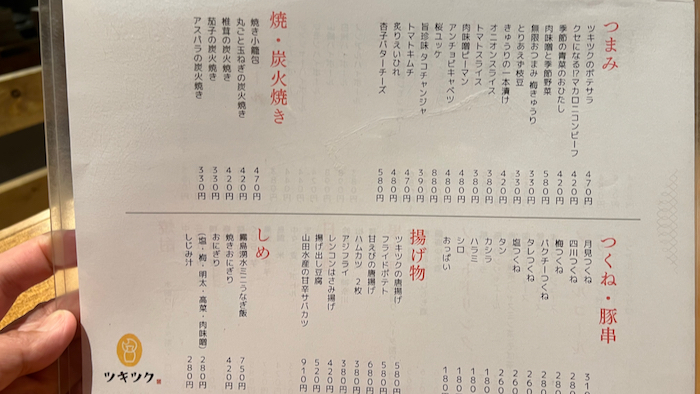 つまみ
ツキツクのポテサラ 470円
クセになる!?マカロニコンビーフ 420円
季節の青菜のおひたし 420円
肉味噌と季節野菜 580円
無限おつまみ 梅きゅうり 330円
とりあえず枝豆 330円
きゅうりの一本漬け 420円
オニオンスライス 380円
トマトスライス 380円
肉味噌ピーマン 480円
アンチョビキャベツ 480円
桜ユッケ 880円
旨珍味 タコチャンジャ 390円
トマトキムチ 470円
炙りえいひれ 480円
杏子バターチーズ 580円
焼・炭火焼き
焼き小籠包 470円
丸ごと玉ねぎの炭火焼き 420円
椎茸の炭火焼き 420円
茄子の炭火焼き 330円
アスパラの炭火焼き 330円
つくね・豚串
月見つくね 31
四川つくね 28
梅つくね 28
つくね 28
タレつくね 26
塩つくね 26
タン 18
カシラ 180
ハラミ 180
シロ 180
おっぱい 180
揚げ物
ツキツクの唐揚げ 580円
フライドポテト 580円
甘えびの唐揚げ 680円
ハムカツ 2枚 380円
アジフライ 380円
レンコンはさみ揚げ 420円
揚げ出し豆腐 520円
山田水産の甘辛サバカツ 910円
しめ
霧島湧水ミニうなぎ飯 750円
焼きおにぎり 420円
おにぎり
(塩・梅・明太・高菜・肉味噌) 280円
しじみ汁 280円
ツキツク